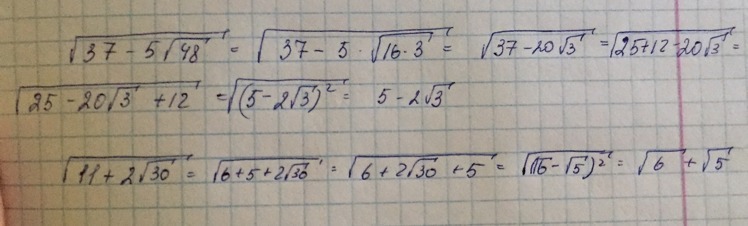 √(37 - 5√48) = √(37 - 5 · √(16·3)) = √(37 - 20√3) = √(25+12-20√3) =
√(25 - 20√3 + 12) = √((5 - 2√3)²) = 5 - 2√3
√(11 + 2√30) = √(6+5+2√30) = √(6 + 2√30 + 5) = √((√6 - √5)²) = √6 + √5